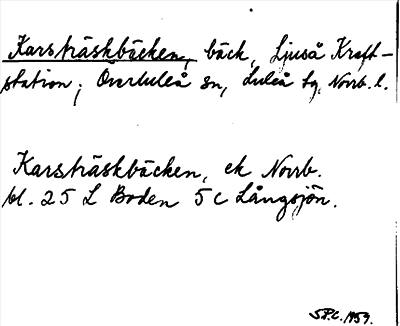 Karsträskbäcken, bäck, Ljuså Kraft-
station, Överluleå sn, Luleå tg, Norrb. l.
Karsträskbäcken, ek Norrb.
bl. 25 L Boden 5 c Långsjön.
1959.